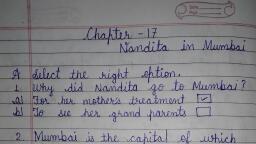 Chapter - 17
Nandita in Mumbai
A Select the right option.
1. Why did Nandita go to Mumbai?
a) For her mother's treatment ☑
b) To see her grand parents ☐
2. Mumbai is the capital of which